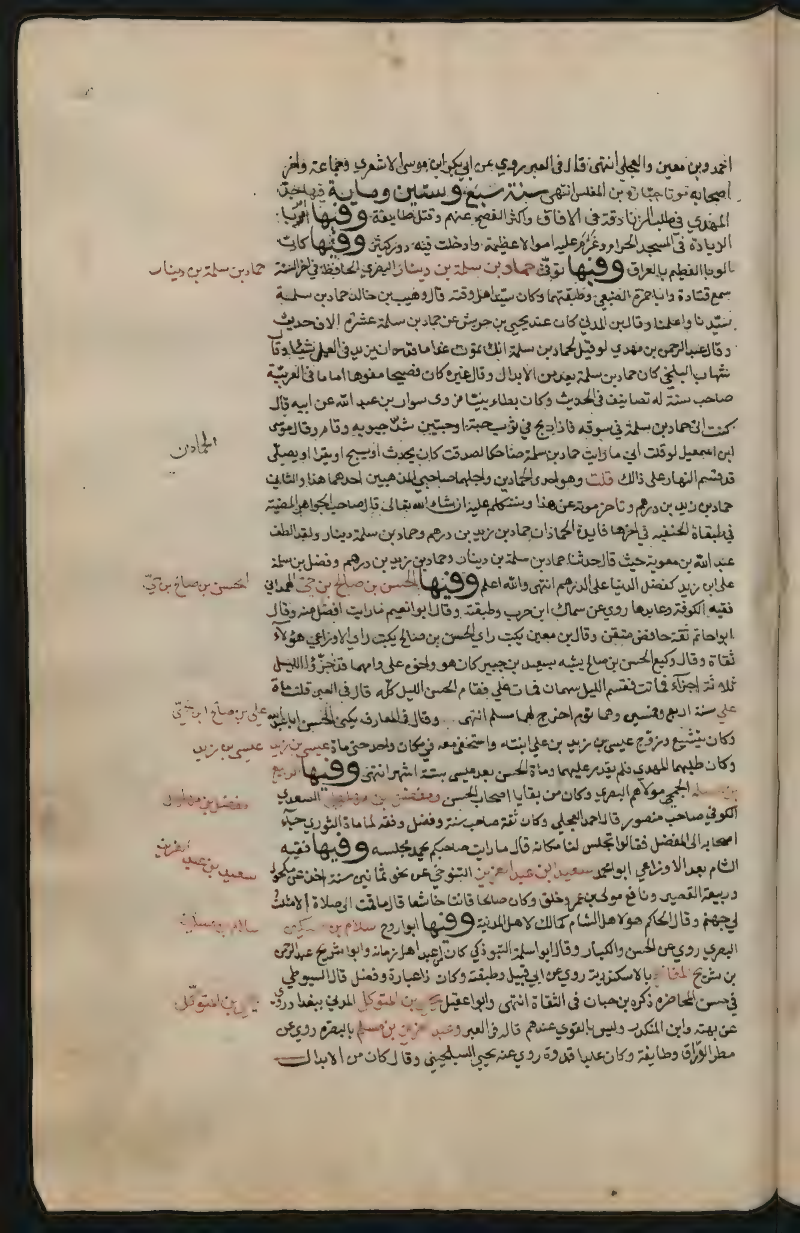 احمد وبن معين والعجلي انتهى قال في العبر روي عن ابي بكر ابن موسى الاشعري وجماعة واخر
اصحابه موتا جبارة بن المغلس انتهى سنة سبع وستين وماية فيها جد
المهدي في طلب الزنادقة في الافاق واكثر الفحص عنهم وقتل طايفة وفيها امر با
الزيادة في المسجد الحرام وغرم عليه اموالا عظيمة وادخلت فيه دور كثيرة وفيها كان
الوبا العظيم بالعراق وفيها توفي حماد بن سلمة بن دينار البصري الحافظ في اخر السنة
حماد بن سلمة بن دينار
سمع قتادة وابا حمزة الضبعي وطبقتهما وكان سيد اهل وقته قال وهيب بن خالد حماد بن سلمة
سيدنا واعلمنا وقال بن المديني كان عند يحيى بن عن حماد بن سلمة عشرة الاف حديث
وقال عبد الرحمن بن مهدي لو قيل لحماد بن سلمة انك تموت غدا ما قدر ان يزيد في العمل شيئا وقا
شهاب البلخي كان حماد بن سلمة يعد من الابدال وقال غيره كان فصيحا مفوها اماما في العربية
صاحب سنة له تصانيف في الحديث وكان بطاينيا فروى سوار بن عبد الله عن ابيه قال
كنت اتي حماد بن سلمة في سوقه فاذا ربح في ثوب حبة او حبتين شد جيوبه وقام وقال موسى
الحمادين
ابن اسمعيل لو قلت اني ما رايت حماد بن سلمة ضاحكا لصدقت كان يحدث او يسبح او يقرا او يصلي
قد قسم النهار على ذلك قلت وهو احدى الحمادين واجلهما صاحبي المذهبين احدهما هذا والثاني
حماد بن زيد بن درهم وتاخر موته عن هذا وسنتكلم عليه ان شاء الله تعالى قال صاحب الجواهر المضية
في طبقاة الحنفيه في اخرها فايدة الحمادان حماد بن زيد بن درهم وحماد بن سلمة دينار ولقد الطف
عبد الله بن معوية حيث قال حدثنا حماد بن سلمة بن دينار وحماد بن زيد بن درهم وفضل بن سلمة
على ابن زيد كفضل الدينا على الدرهم انتهى والله اعلم وفيها الحسن بن صالح بن حي الهمداني
الحسن بن صالح بن حي
فقيه الكوفة وعابدها روي عن سماك ابن حرب وطبقته وقال ابو نعيم ما رايت افضل منه وقال
ابو حاتم ثقة حافظ متقن وقال بن معين يكتب راي الحسن بن صالح يكتب راي الاوزاعي هؤلاء
ثقاة وقال وكيع الحسن بن صالح يشبه بسعيد بن جبير كان هو واخوه علي وامهما قد جزؤا الليل
ثلاثة اجزاء فماتت فقسم الليل سهمان فمات علي فقام الحسن الليل كله قال في العبر قلت ماة
علي سنة اربع وخمسين وهما توم اخرج لهما مسلم انتهى وقال في المعارف يكنى الحسن ابا عبد الله
علي بن صالح ابن حي
وكان يتشيع وتزوج عيسى بن زيد بن علي ابنته واستخفى معه في مكان واحد حتى ماة عيسى بن زيد
عيسى بن زيد
وكان طلبهما المهدي فلم يقدر عليهما وماة الحسن بعد عيسى بستة اشهر انتهى وفيها الربيع
بن مسلم الجمحي مولاهم البصري وكان من بقايا اصحاب الحسن ومفضل بن مهلهل السعدي
مفضل بن مهلهل
الكوفي صاحب منصور قال احمد العجلي وكان ثقة صاحب سنة وفضل وفقه لما ماة الثوري جاء
اصحابه الى المفضل فقالوا تجلس لنا مكانه قال ما رايت صاحبكم يحمد مجلسه وفيها فقيه
الشام بعد الاوزاعي ابو محمد سعيد بن عبد العزيز التنوخي عن نحو ثمانين سنة اخذ عن مكحول
سعيد بن عبد العزيز
وربيعة القصير ونافع مولى بن عمر وخلق وكان صالحا قانتا خاشعا قال ما قمت الى صلاة الا مثلت
لي جهنم وقال الحاكم هو لاهل الشام كمالك لاهل المدنية وفيها ابو روح سلام بن مسكين
سلام بن مسكين
البصري روي عن الحسن والكبار وقال ابو سلمة التبوذكي كان اعبد اهل زمانه وابو شريح عبد الرحمن
بن شريح المعافري بالاسكندرية روي عن ابي قبيل وطبقته وكان ذا عبادة وفضل قال السيوطي
في حسن المحاضرة ذكره بن حبان في الثقاة انتهى وابو عقيل يحيى بن المتوكل المدني ببغداد روى
يحيى بن المتوكل
عن بهية وابن المنكدر وليس بالقوي عندهم قاله في العبر وعبد العزيز بن مسلم بالبصره روي عن
مطر الوراق وطايفة وكان عابدا قدوة روي عنه يحيى السيلحيني وقال كان من الابدال